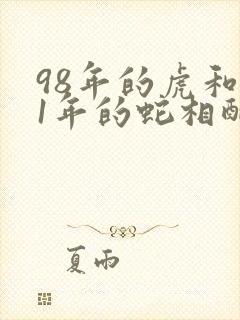 98年的虎和
1年的蛇相配
夏雨